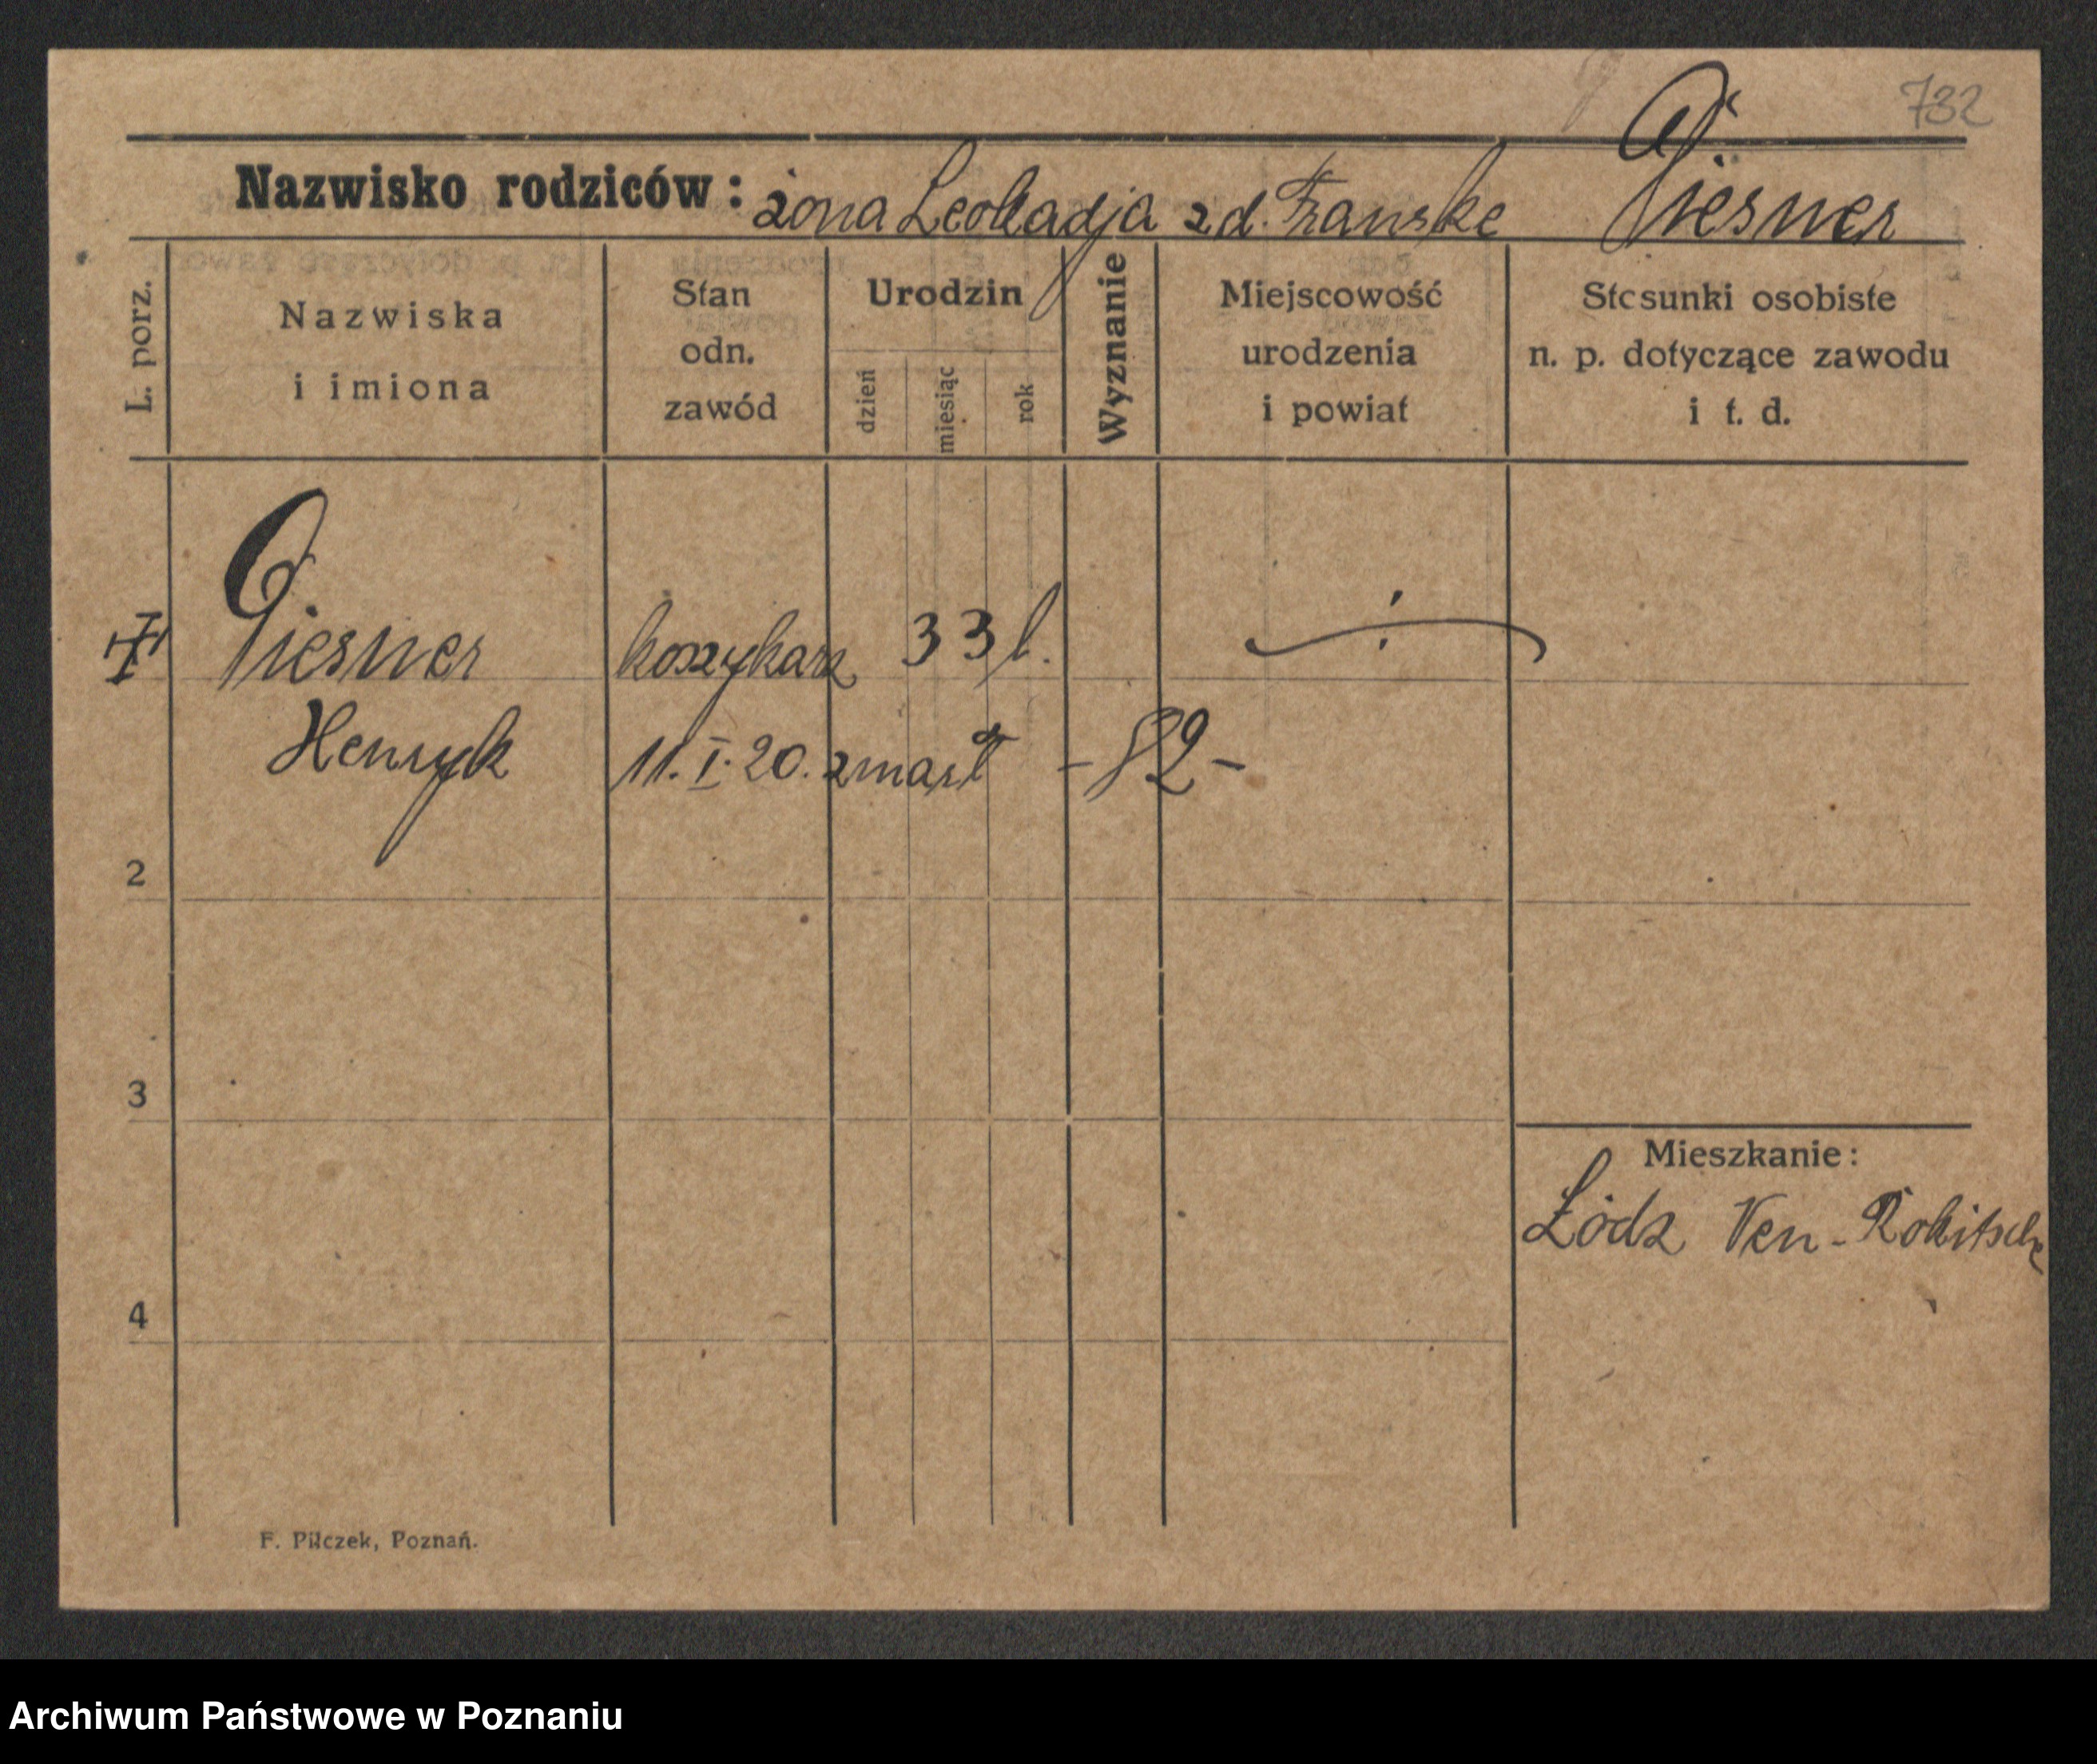 732
Nazwisko rodziców: żona Leokadja zd. Franske Piesner
L. porz.
Nazwiska
i imiona
Stan
odn.
zawód
Urodzin
dzień
miesiąc
rok
Wyznanie
Miejscowość
urodzenia
i powiat
Stosunki osobiste
n. p. dotyczące zawodu
i t. d.
Piesner koszykarz 33 l.
Henryk 11. I. 20. zmarł -82-
2
3
Mieszkanie:
Łódz Ven-Rokitsche
4
F. Pilczek, Poznań.
Archiwum Państwowe w Poznaniu